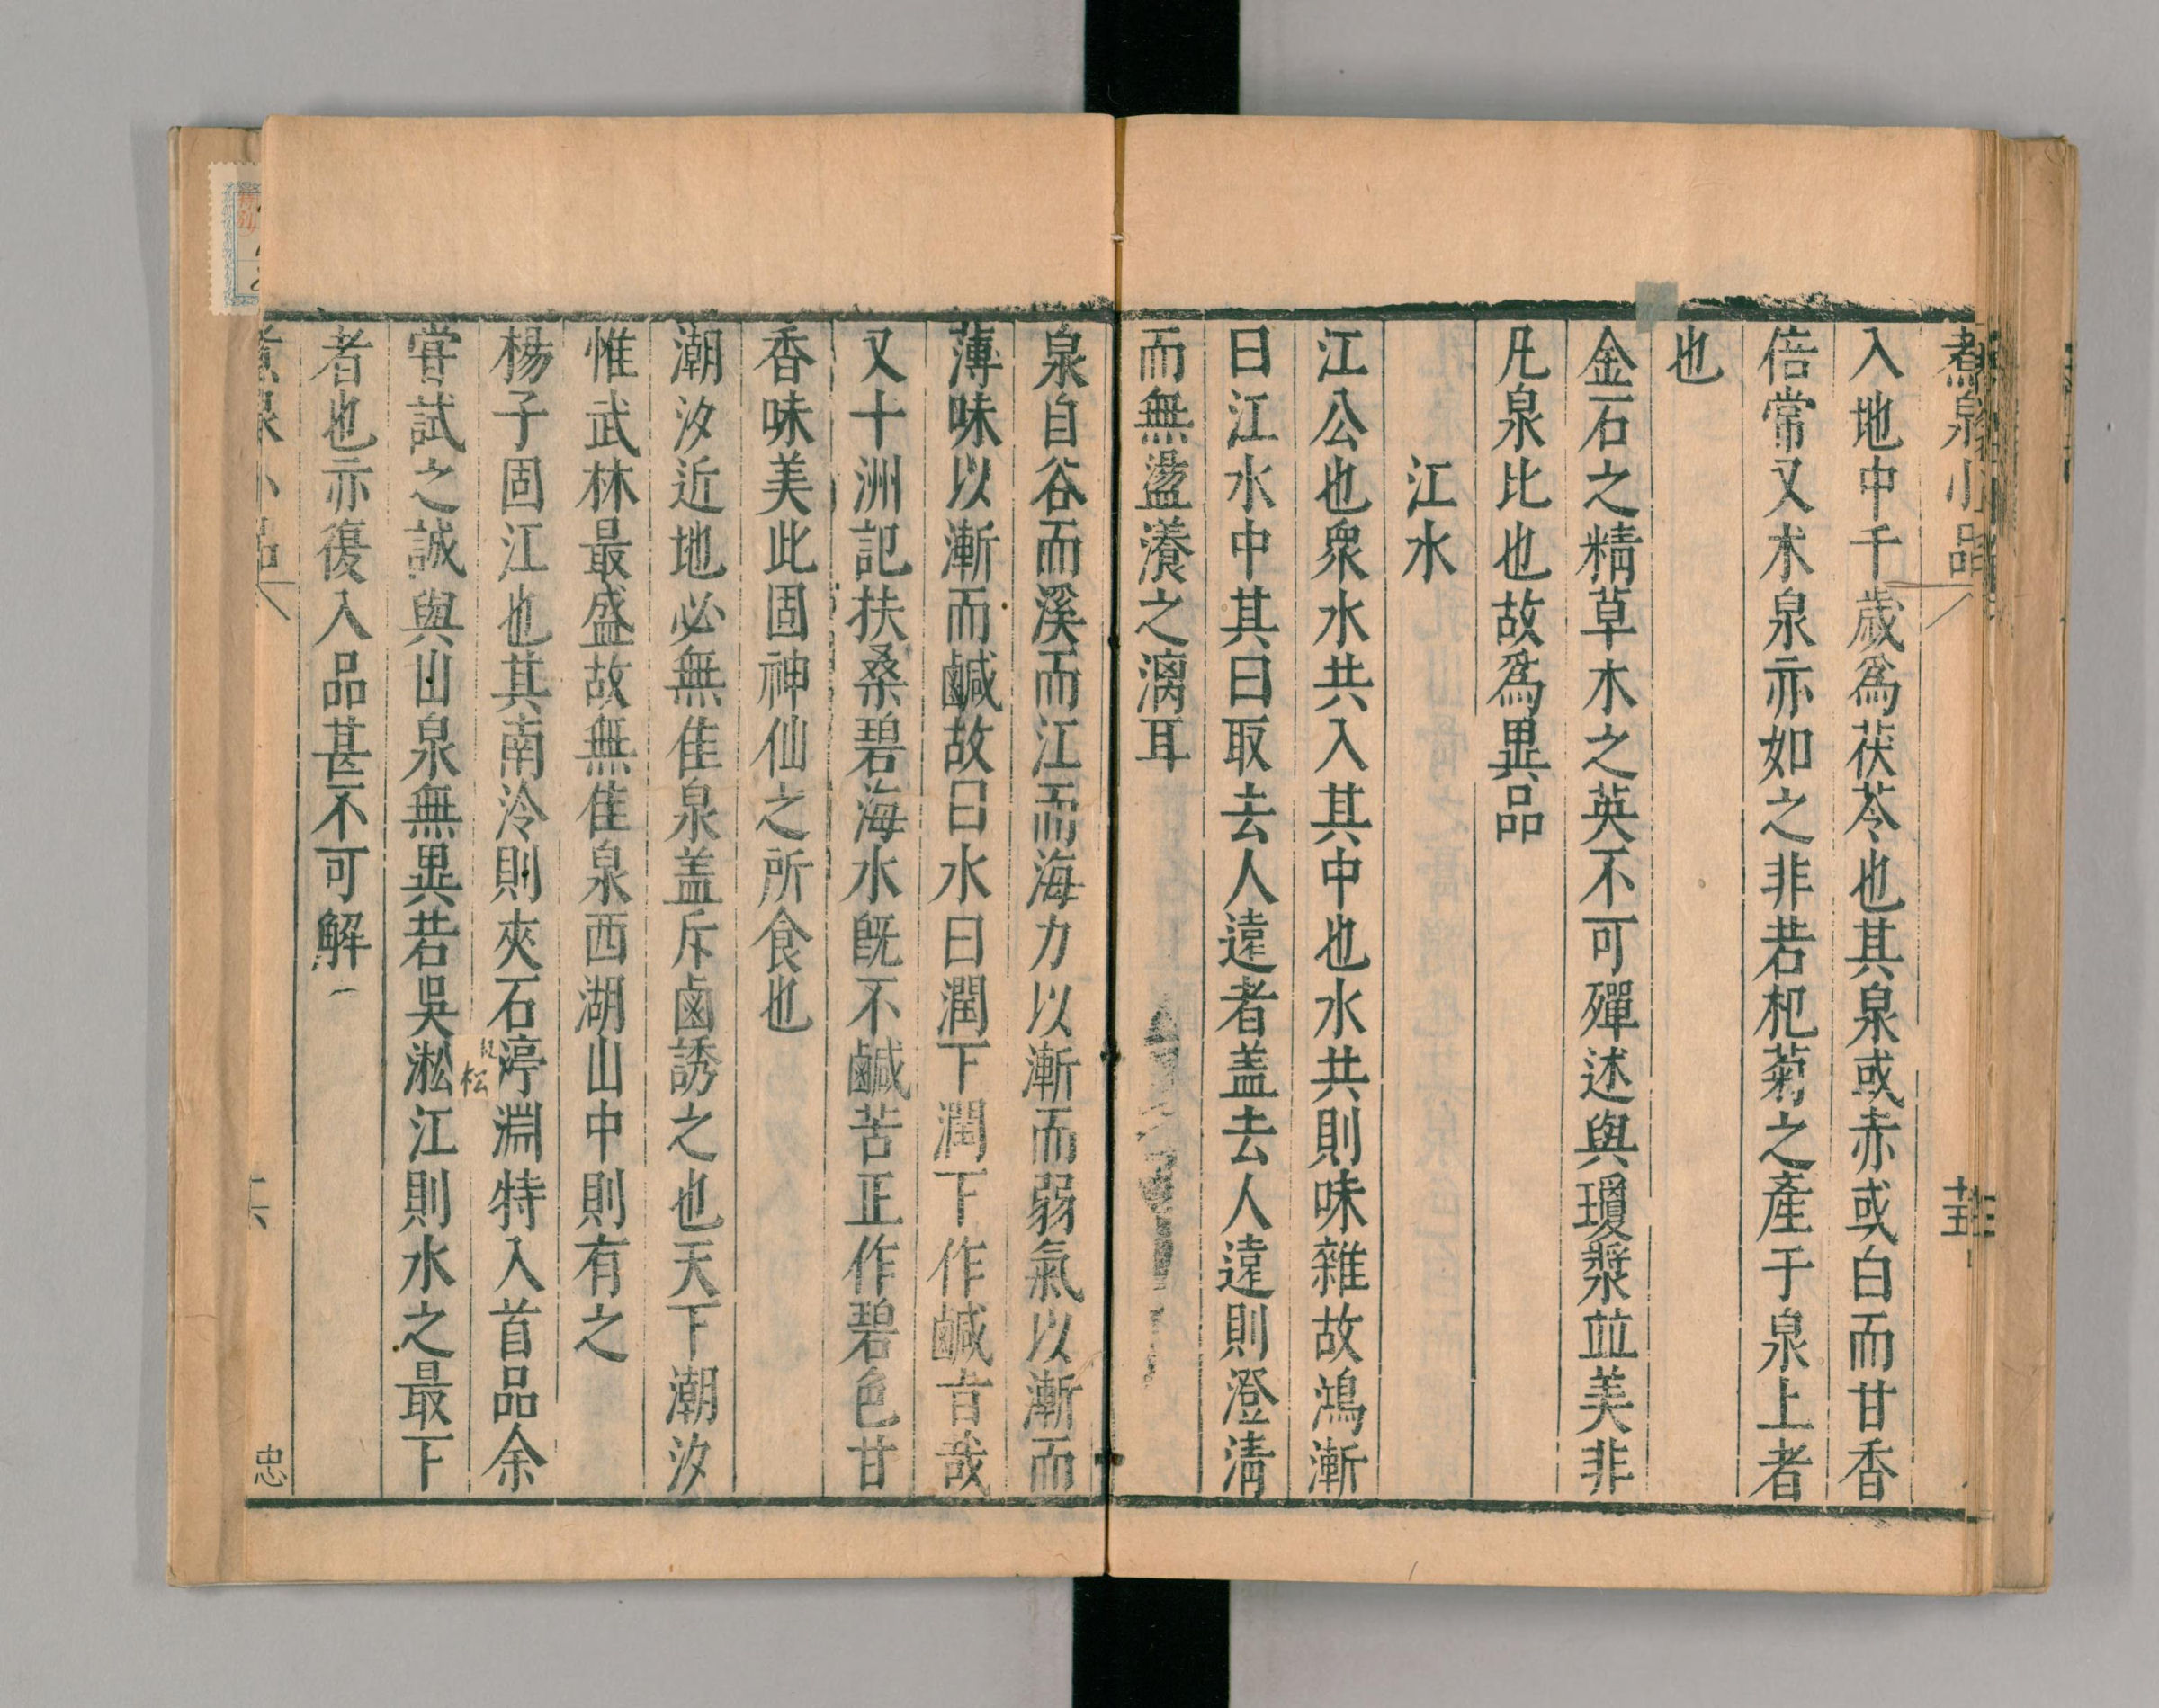 煮泉小品
入地中千歲爲茯苓也其泉或赤或白而甘香
倍常又朮泉亦如之非若杞菊之產于泉上者
也
金石之精草木之英不可殫述與瓊漿並美非
凡泉比也故爲異品
江水
江公也衆水共入其中也水共則味雜故鴻漸
曰江水中其曰取去人遠者盖去人遠則澄清
而無盪瀁之漓耳
泉自谷而溪而江而海力以漸而弱氣以漸而
薄味以漸而鹹故曰水曰潤下潤下作鹹旨哉
又十洲記扶桑碧海水旣不鹹苦正作碧色甘
香味美此固神仙之所食也
潮汐近地必無佳泉盖斥鹵誘之也天下潮汐
惟武林最盛故無佳泉西湖山中則有之
楊子固江也其南泠則夾石渟淵特入首品余
嘗試之誠與山泉無異若吳淞江則水之最下
松
者也亦復入品甚不可解
煮泉小品
忠